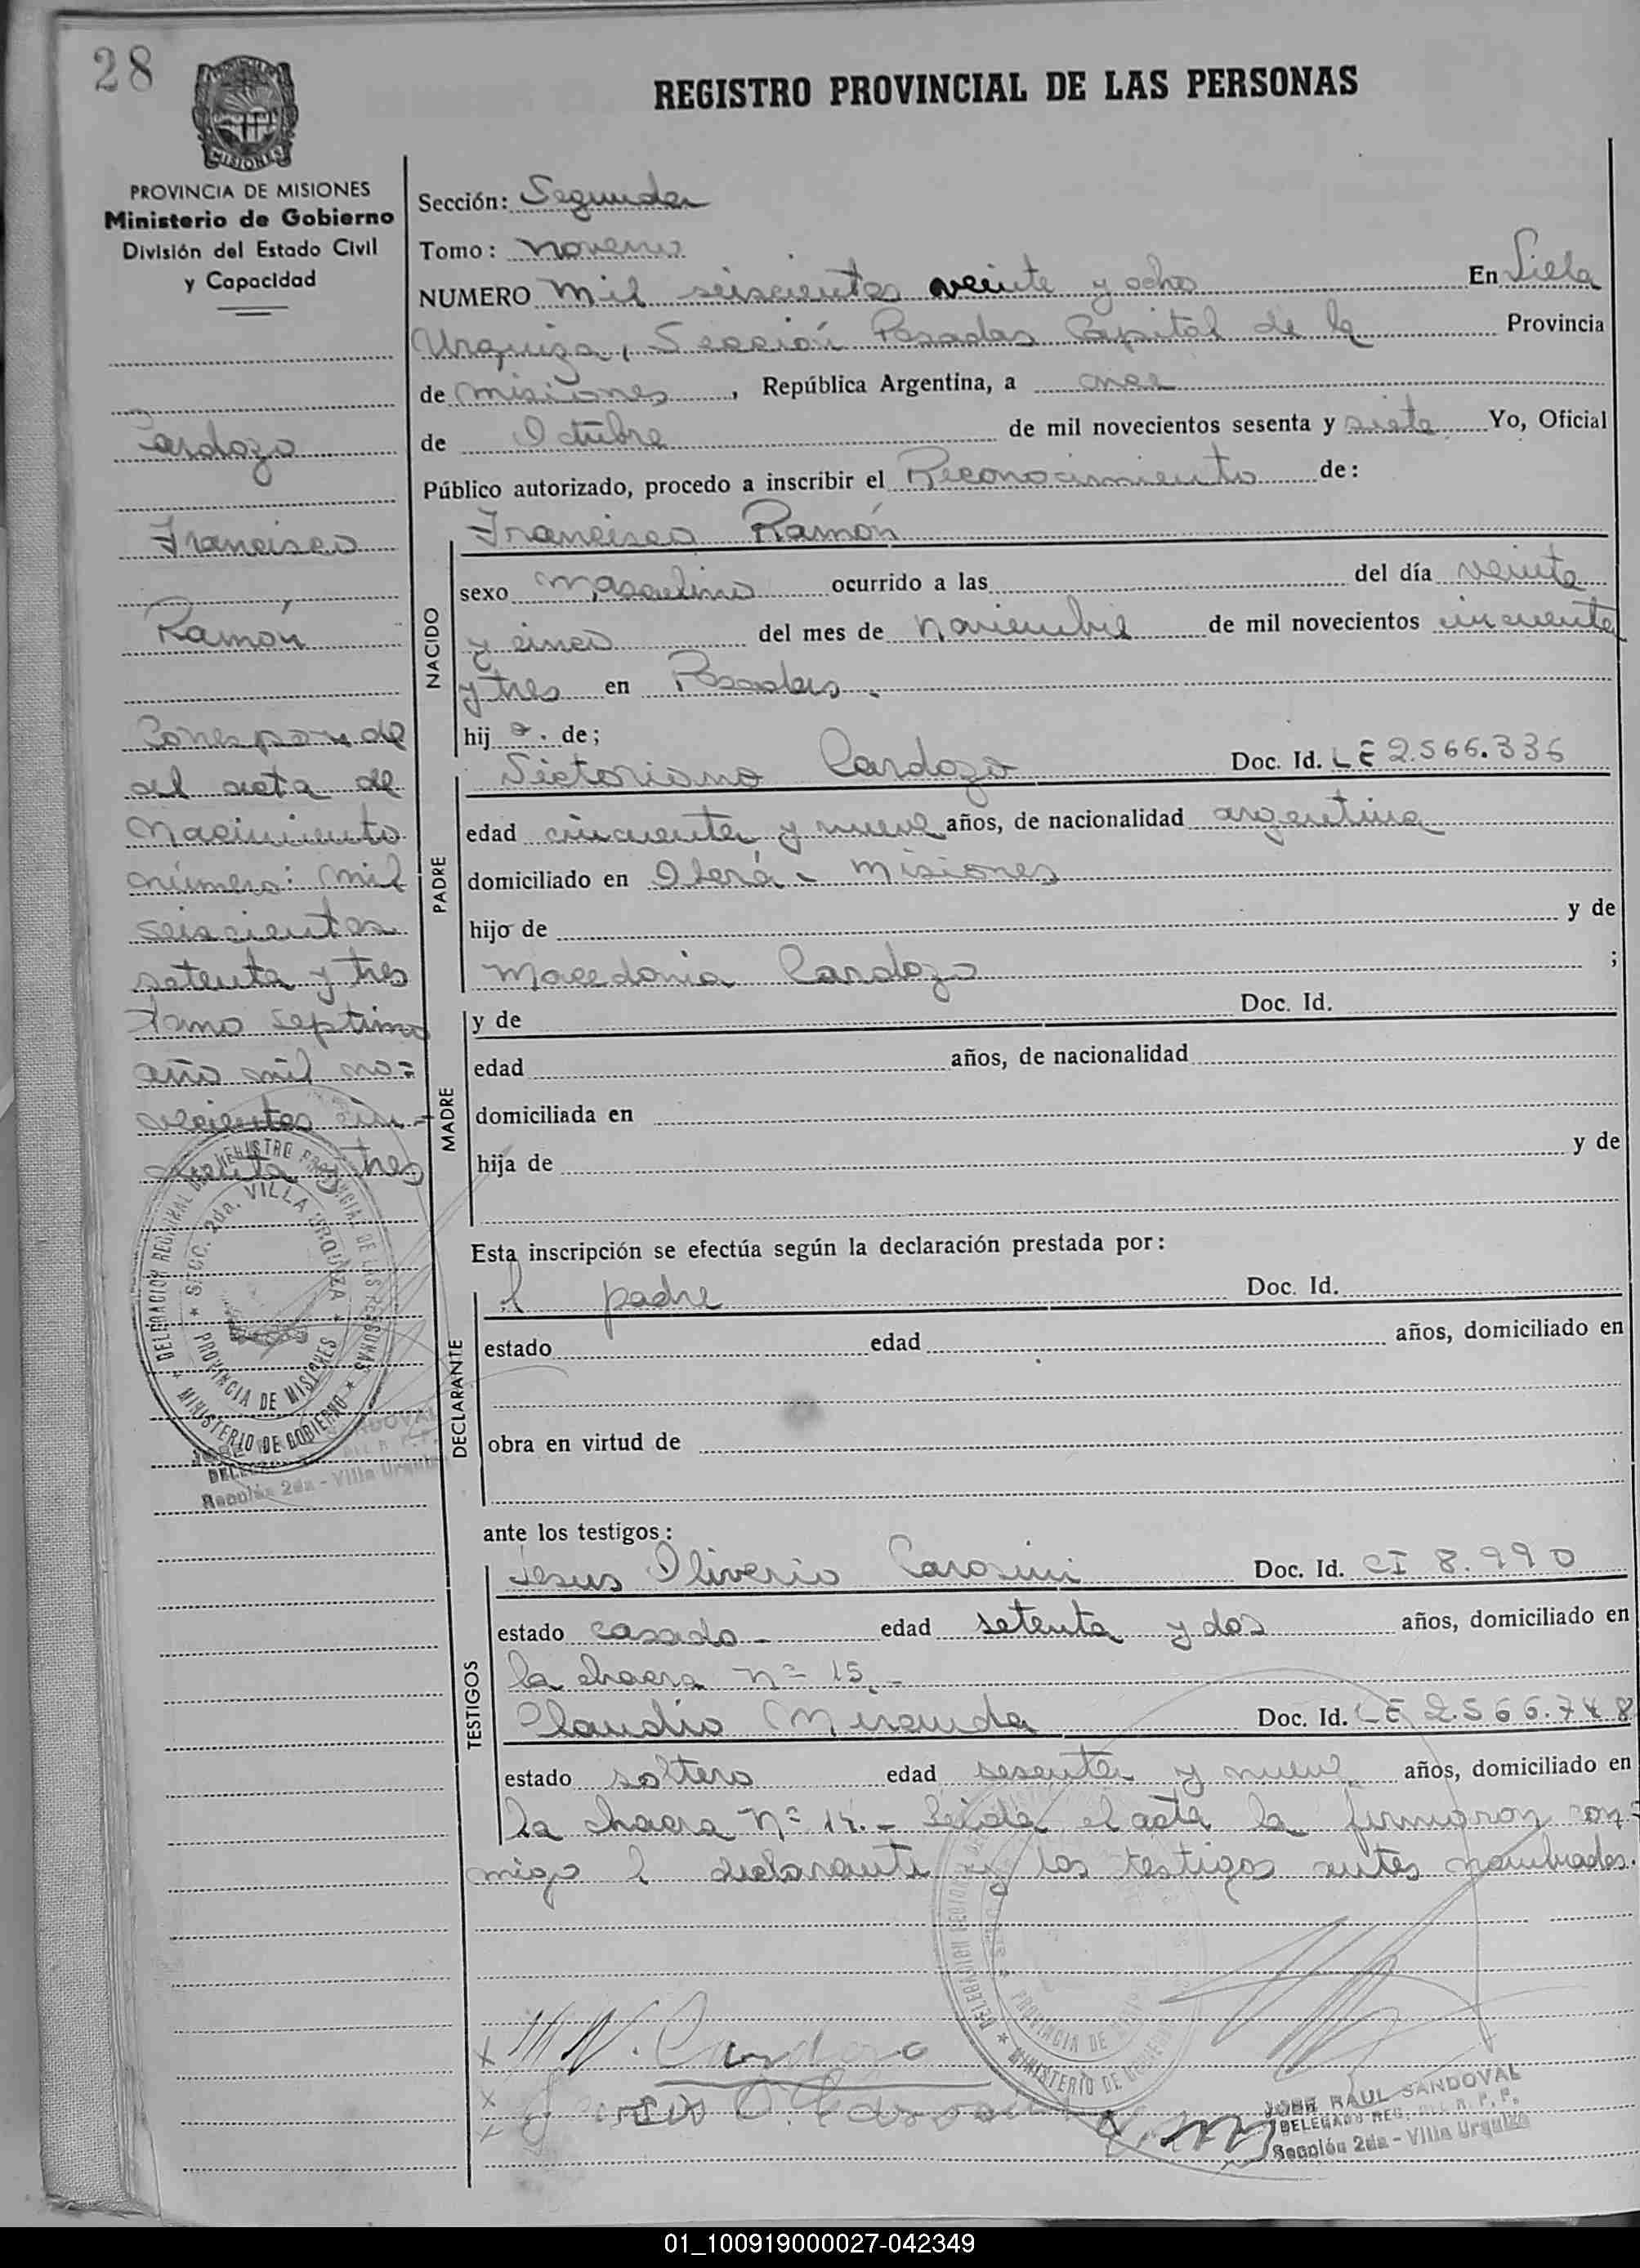 28
REGISTRO PROVINCIAL DE LAS PERSONAS
MISIONES
PROVINCIA DE MISIONES
Ministerio de Gobierno
División del Estado Civil
y Capacidad
Cardozo
Francisco
Ramón
Corresponde
al acta de
Nacimiento
número: mil
seiscientos
setenta y tres
tomo septimo
año mil no=
vecientos cin=
cuenta y tres
DELEGACION REGIONAL DEL REGISTRO PROVINCIAL DE LAS PERSONAS
SECC. 2da. VILLA URQUIZA
PROVINCIA DE MISIONES
MINISTERIO DE GOBIERNO
SANDOVAL
Sección 2da - Villa Urquiza
Sección: Segunda
Tomo: Noveno
NUMERO Mil seiscientos veinte y ocho En Villa
Urquiza, Sección Posadas Capital de la Provincia
de Misiones, República Argentina, a once
de Octubre de mil novecientos sesenta y siete Yo, Oficial
Público autorizado, procedo a inscribir el Reconocimiento de:
NACIDO
Francisco Ramón
sexo Masculino ocurrido a las del día veinte
y cinco del mes de Noviembre de mil novecientos cincuenta
y tres en Posadas.
hij o. de;
PADRE
Victoriano Cardozo Doc. Id. LE 2.566.336
edad cincuenta y nueve años, de nacionalidad argentina
domiciliado en Oberá - Misiones
hijo de y de
Macedonia Cardozo ;
MADRE
y de Doc. Id.
edad años, de nacionalidad
domiciliada en
hija de y de
Esta inscripción se efectúa según la declaración prestada por:
DECLARANTE
l padre Doc. Id.
estado edad años, domiciliado en
obra en virtud de
ante los testigos:
TESTIGOS
Jesus Oliverio Carosini Doc. Id. CI 8.990
estado casado - edad setenta y dos años, domiciliado en
la chacra nº 15. -
Claudio Miranda Doc. Id. LE 2.566.748
estado soltero edad sesenta y nueve años, domiciliado en
la chacra nº 14. - Leida el acta la firmaron con=
migo l declarante y los testigos antes nombrados.
DELEGACION REGIONAL
PROVINCIA DE
MINISTERIO DE GOBIERNO
Cardozo
JOSE RAUL SANDOVAL
DELEGADO REG. DEL R. P. P.
Sección 2da - Villa Urquiza
01_100919000027-042349